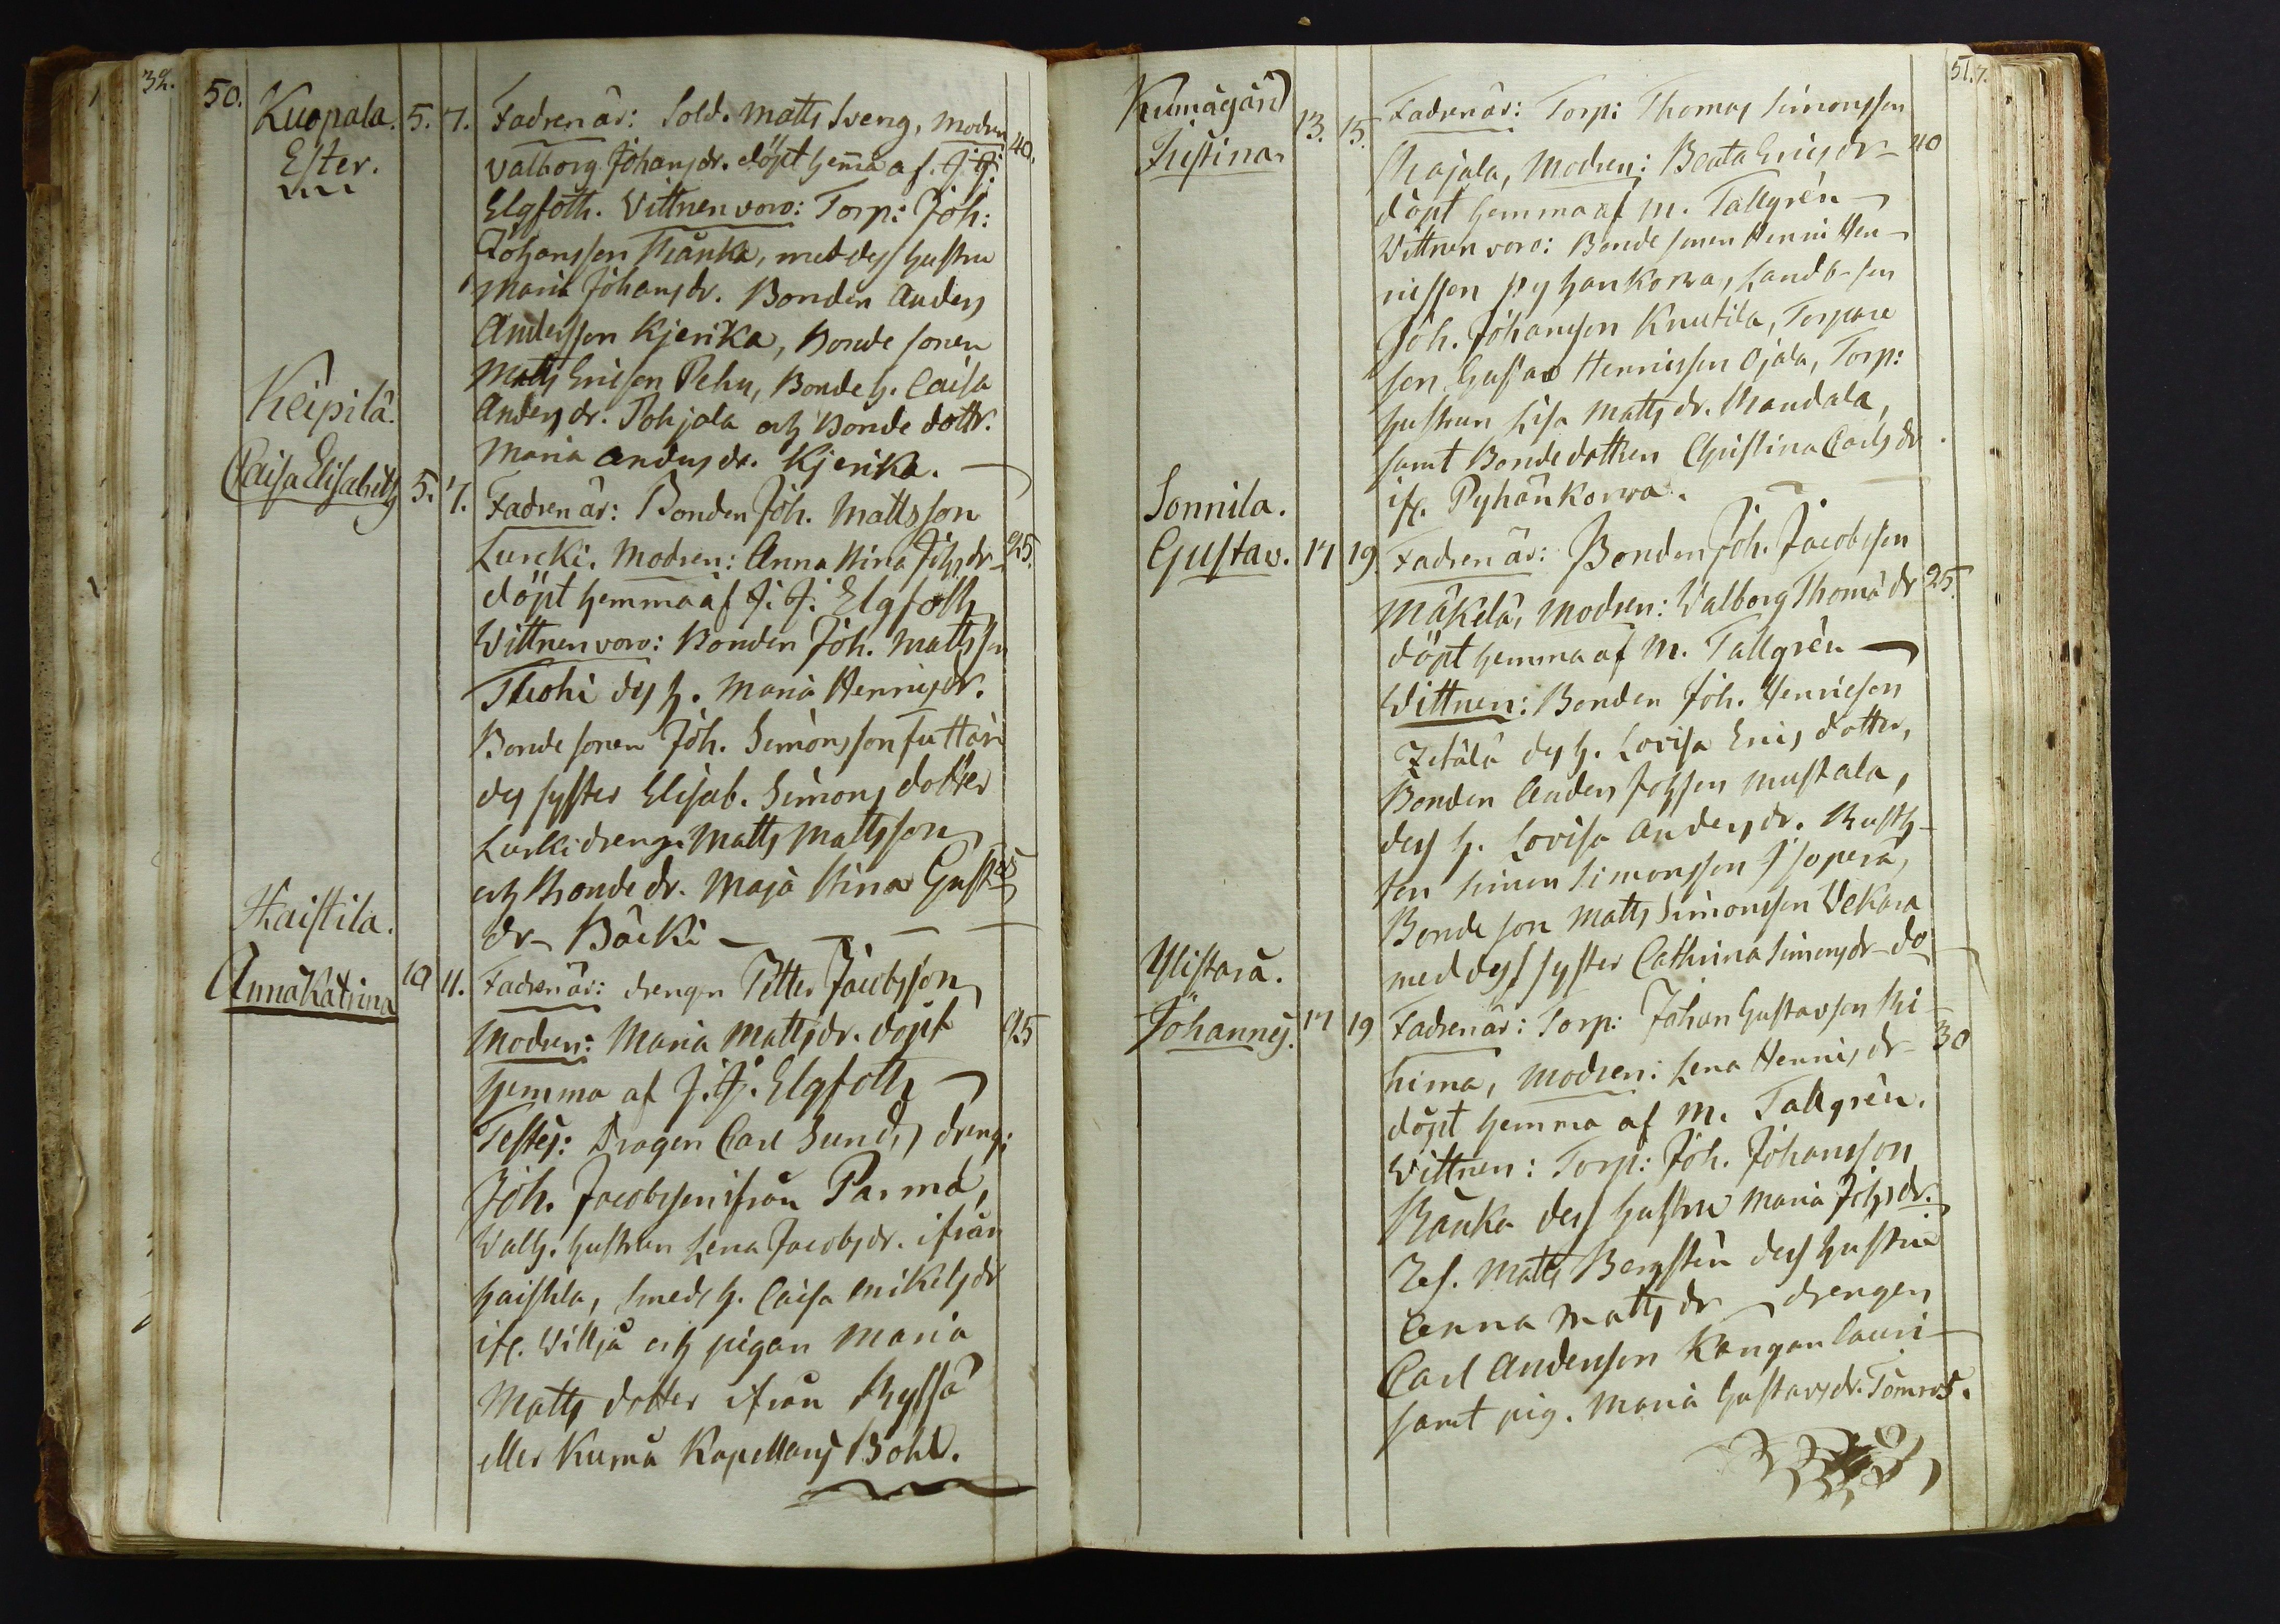 32.
50.
Kuopala. 5. 7. Fadren är: Sold. Matts Sveng, modren 40.
Ester. Valborg Johansdr. döpt hema af J. J:
Elgfoth. Vittnen voro: Torp: Joh:
Johansson Ränka, med dess hustru
Maria Johansdr. Bonden Anders
Andersson Kjerika, Bonde sonen
Matts Ericson Pehu, Bonde h. Caisa
Keipilä. Andersdr. Pohjala och Bonde dottr.
Maria Andersdr. Kjerika.
Caisa Elisabeth 5. 7. Fadren är: Bonden Joh. Mattsson
Lurcki. Modren: Anna Stina Johsdr 25.
döpt hemma af J. J. Elgfoth
Wittnen voro: Bonden Joh. Mattsson
Tuohi dess h. Maria Henricsdr.
Bonde sonen Joh. Simonsson Juttari
dess syster Elisab. Simons dotter
Lurki dreng. Matts Mattsson
och Bonde dr. Maja Stina Gustavs
Kaistila. dr Bäcki
Anna Katrina 10 11. Fadren är: drengen Petter Jacobsson
Modren: Maria Mattsdr. döpt 25
hemma af J. J. Elgfoth
Testes: Dragon Carl Sund, dreng:
Joh. Jacobsson ifrån Parma,
Vallh. hustrun Lena Jacobsdr. ifrån
haistila, smeds h. Caisa Mikelsdr
ifr. Villja och pigan Maria
Matts dotter ifrån Ryssä
eller Kumå Kapellans Bohl.
51. 7.
Kumågård 13. 15. Fadren är: Torp: Thomas Simonsson
Justina. Majala, Modren: Beata Ericsdr 40
döpt hemma af M. Tallgrén
Vittnen voro: Bonde sonen Henric Hen
ricsson Pyhänkorva, Landb-son
Joh. Johanson Knutila, Torpare
son Gustav Henricsson Ojala, Torp:
hustrun Lisa Mattsdr. Mandala,
samt Bonde dottren Christina Carlsdr
Sonnila. ifr. Pyhänkorva.
Gustav. 17 19. Fadren är: Bonden Joh. Jacobsson
Mäkelä, Modren: Valborg Thomædr 25.
döpt hemma af M. Tallgrén
Wittnen: Bonden Joh. Henricson
dess h. Lovisa Erics dotter,
Bonden Anders Johsson Mustala,
dess h. Lovisa Andersdr. Rusth-
ten Simon Simonsson Isoperä,
Bonde son Matts Simonsson Vekara
Ylistarå. med dess syster Cathrina Simonsdr do
Johannes. 17 19 Fadren är: Torp: Johan Gustavson Ki
hima, Modren: Lena Henricsdr 30
döpt hemma af M. Tallgrén.
Vittnen: Torp: Joh. Johansson
Ränka dess hustru Maria Johsdr.
Ref. Matts Bergstén dess hustru
Anna Mattsdr drengen
Carl Anderson Kangan lauri
samt pig. Maria Gustavsdr. Tömrös.